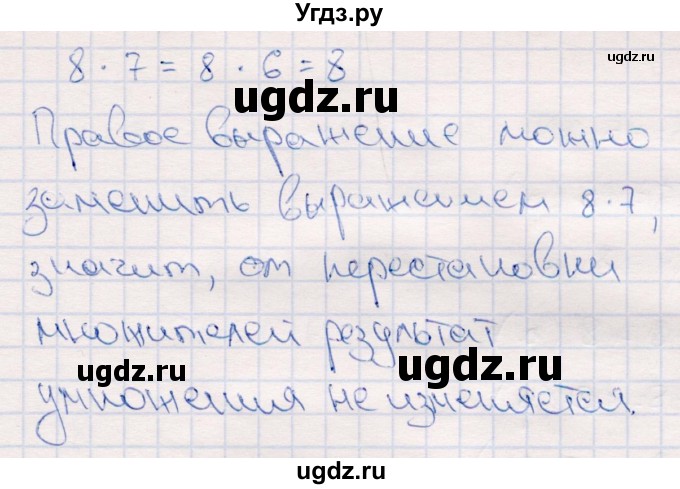 Угдз.ру
8 · 7 = 8 · 6 = 8
ugdz.ru
ugdz.ru
Правое выражение можно
ugdz.ru
заменить выражением 8·7,
значит, от перестановки
ugdz.ru
множителей результат
ugdz.ru
ugdz.ru
умножения не изменяется.
ugdz.ru